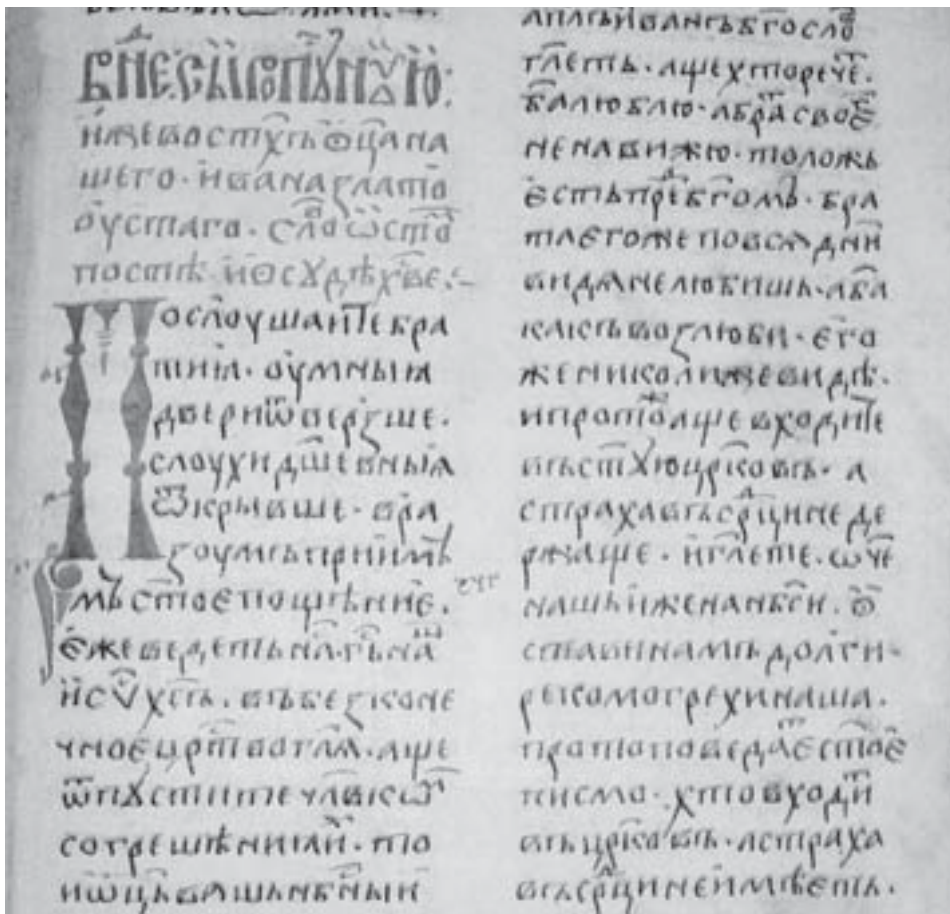 в нⷣе сыропꙋⷭнꙋю:
иже во стⷯъ ѿца на
шего · ивана злато
оустаго · слоⷡ ѡ стоⷨ
посте · и ѡ сꙋде хвⷭе ·
Послоушаите бра
тиꙗ · оумныꙗ
двери ѿверзъше ·
слоухи дш҃евныꙗ
ѿкрывше · вра
зоумъ приимѣ
мъ ст҃ое поще́ние ·
еже ведеть на · гъ на
ис х҃съ · въ бесконе
чное црⷭтво гл҃ѧ · аще
ѿпꙋстите чл҃вкоⷨ
согрешениꙗ иⷯ · то
и ѿць вашь нбⷭныи
апⷭлъ иванъ бг҃осло
гл҃еть · аще хто речеⷮ ·
ба҃ люблю · а браⷮа своеⷢ
ненавижю · то ложь
есть преⷣ бг҃омъ · бра
та егоже по всѧ дни
видѧ не любишь · а ба҃
какъ возлюби · его
же николиже виде ·
и протоⷤ аще входите
въ ст҃ꙋю црк҃овь · а
страха въ срⷣци не де
ржаще · и гл҃ете · ѡч҃е
нашь иже на нбⷭи · ѡ
стави намъ долги ·
рекомо грехи наша ·
про то поведаⷮ е ст҃ое
писмо · хто входиⷮ
въ црк҃овь · а страха
въ срⷣци не имѣеть ·